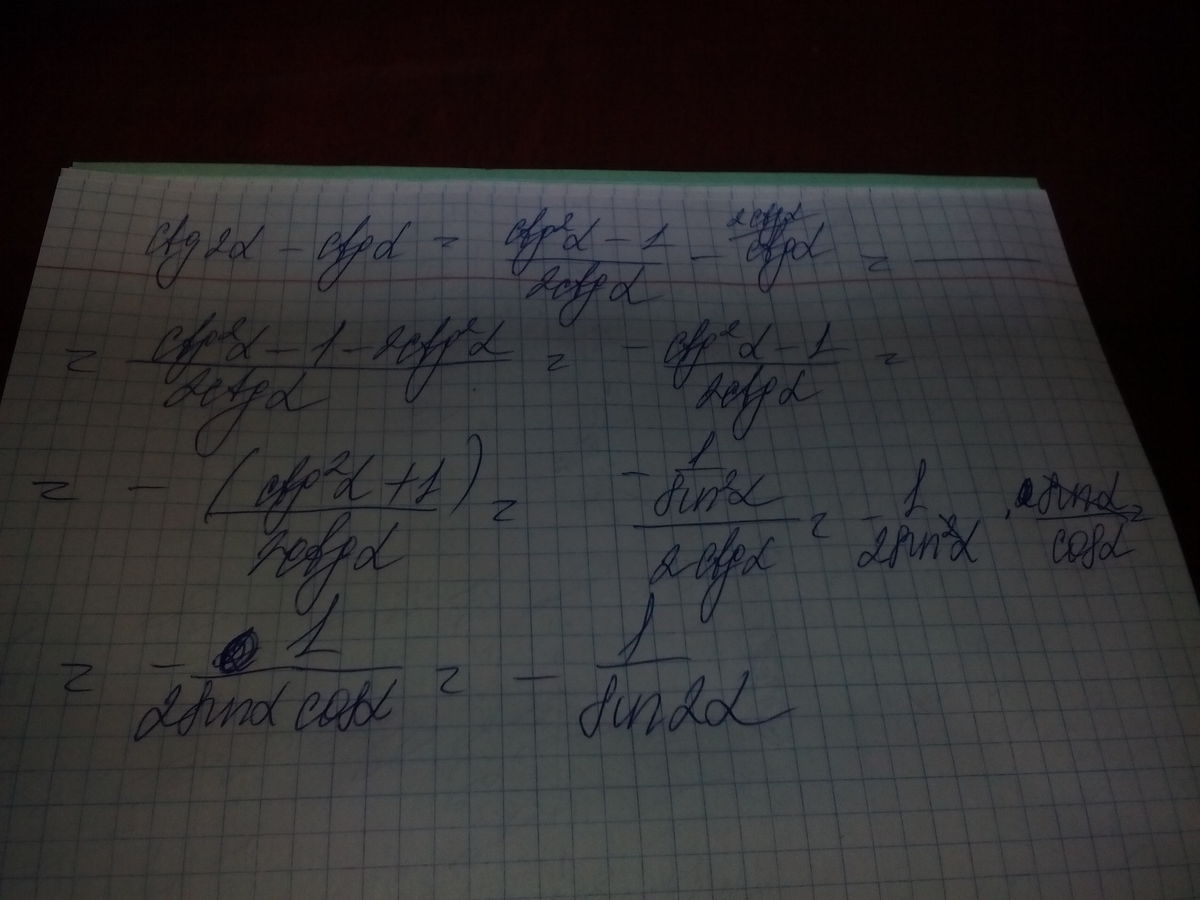 ctg2α - ctgα = (ctg²α - 1)/(2ctgα) - ctgα^(2ctgα) =
= (ctg²α - 1 - 2ctg²α)/(2ctgα) = (-ctg²α - 1)/(2ctgα) =
= -(ctg²α + 1)/(2ctgα) = -(1/sin²α)/(2ctgα) = -1/(2sin²α) · sinα/cosα =
= -1/(2sinα cosα) = -1/(sin2α)